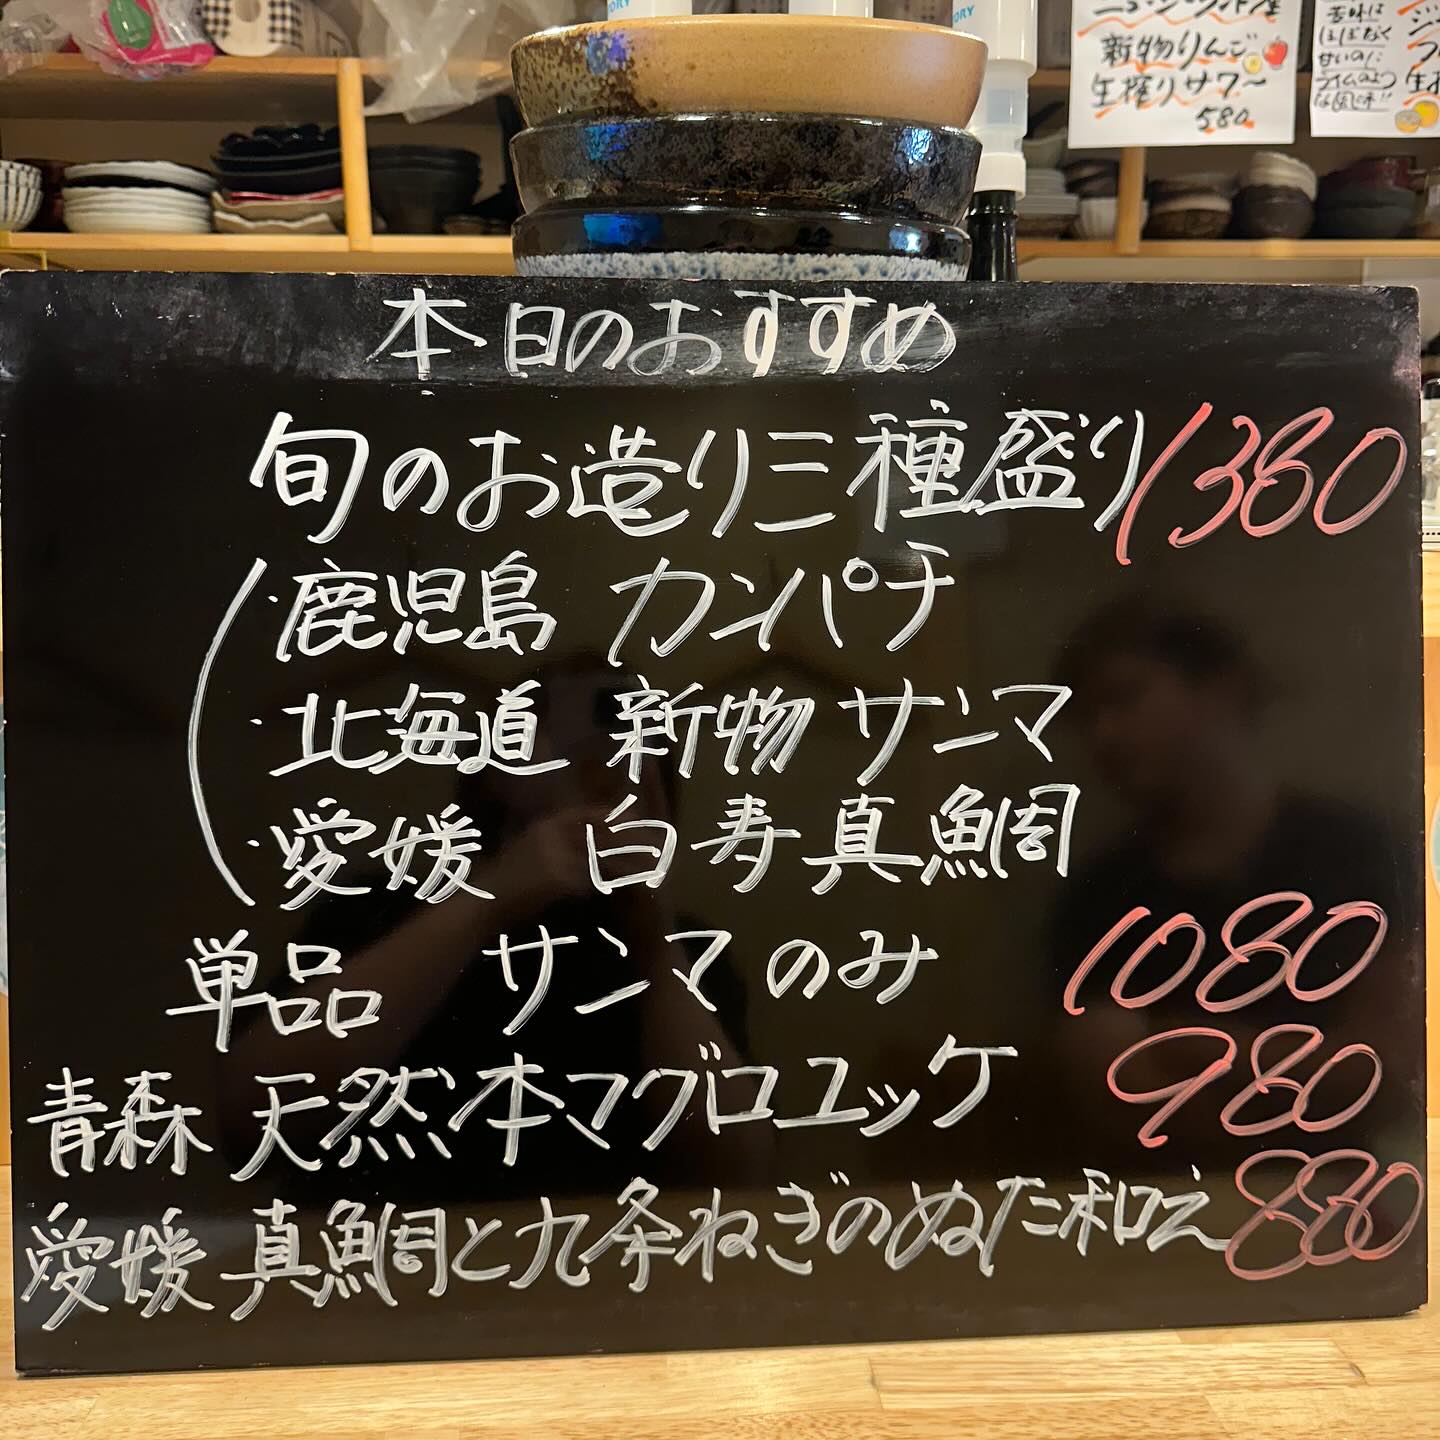 新物りんご
生搾りサワー
580
苦味は
ほぼなく
本日のおすすめ
旬のお造り三種盛り 1380
・鹿児島 カンパチ
・北海道 新物 サンマ
・愛媛 白寿真鯛
単品 サンマのみ 1080
青森 天然本マグロユッケ 980
愛媛 真鯛と九条ねぎのぬた和え 880